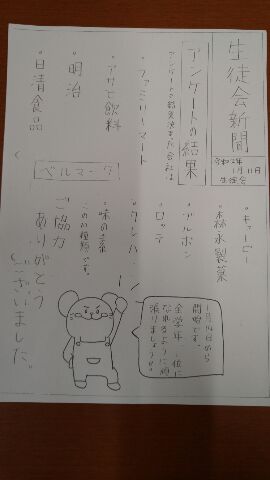 生徒会新聞
令和2年
1月11日
生徒会
アンケートの結果
アンケートの結果決まった会社は
・ファミリーマート
・アサヒ飲料
・明治
・日清食品
・キューピー
・森永製菓
・ブルボン
・ロッテ
・ケンハ
・味の素
この10種類です。
ベルマーク
1月14日から
開始です。
全学年1位に
なれるように頑
張りましょう。
ご協力
ありがとう
ございました。